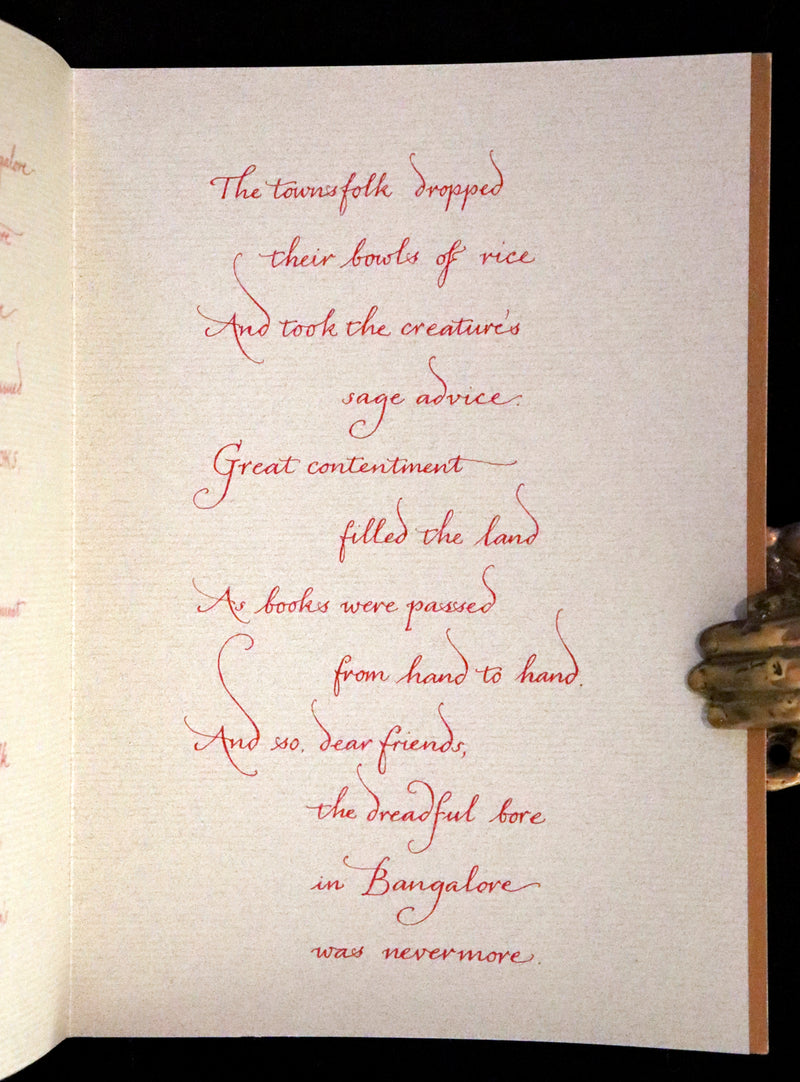 The townsfolk dropped
their bowls of rice
And took the creature's
sage advice.
Great contentment
filled the land
As books were passed
from hand to hand.
And so, dear friends,
the dreadful bore
in Bangalore
was nevermore.